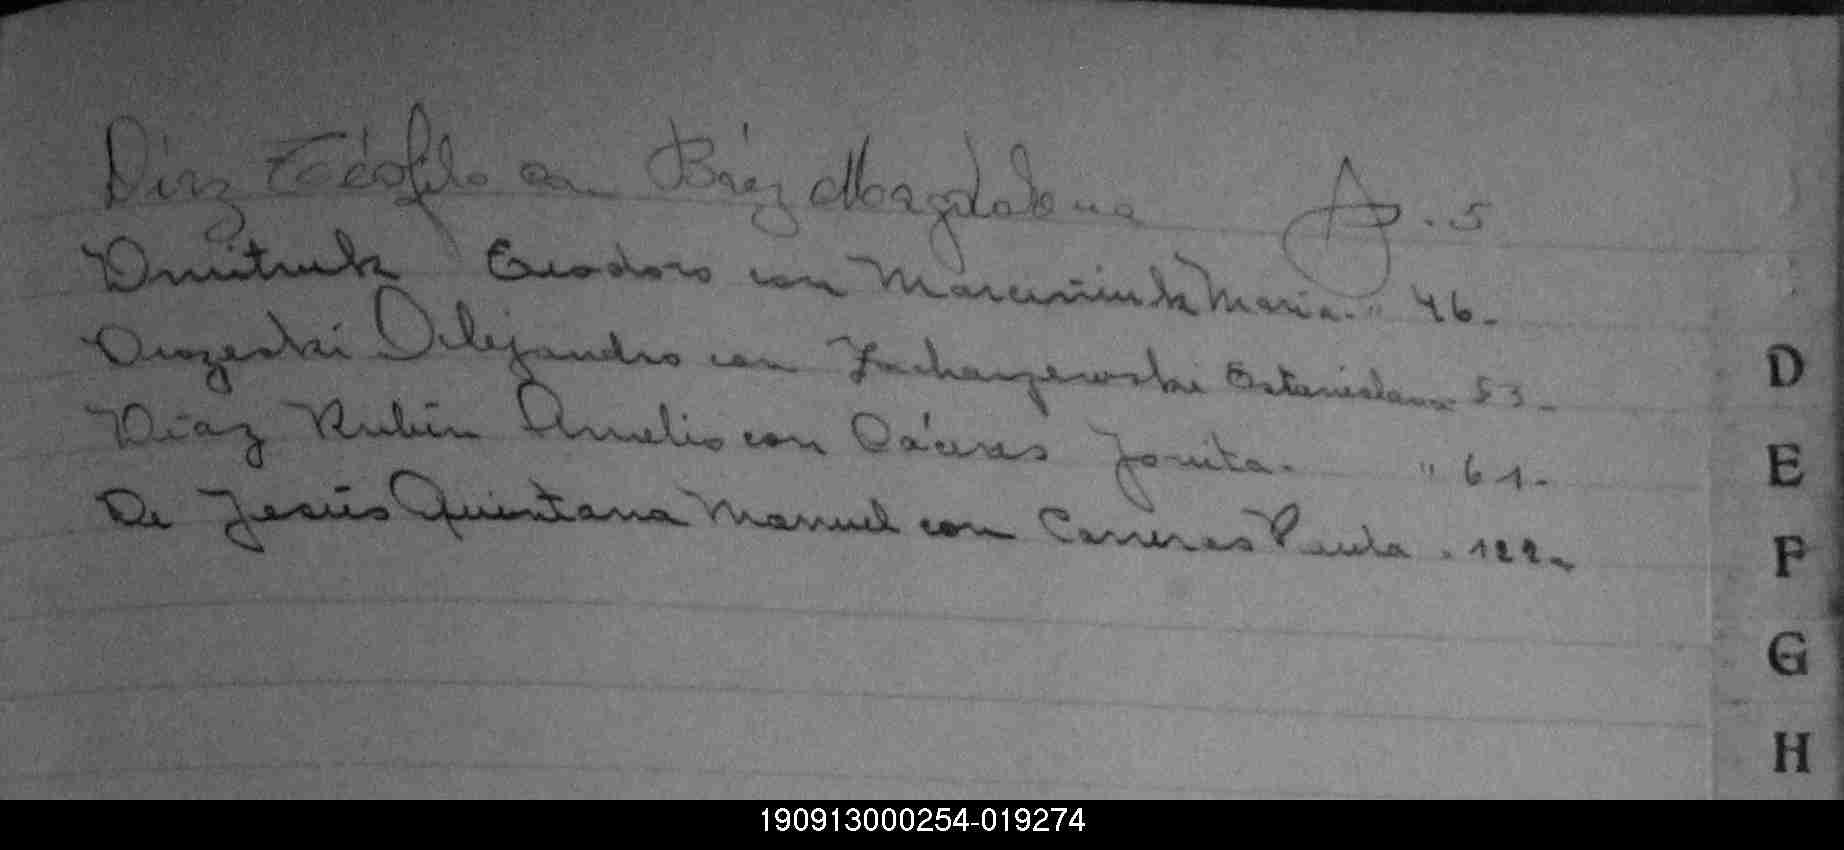 Díaz Teófilo con Báez Magdalena Ag. 5
Dmitruk Teodoro con Marciniuk Maria " 46-
Alejandro con Estanislava 53-
Díaz Rubén Amelio con Cáceres Jovita- " 61-
De Jesús Quintana Manuel con Carreras Paula . 122-
D
E
F
G
H
190913000254-019274